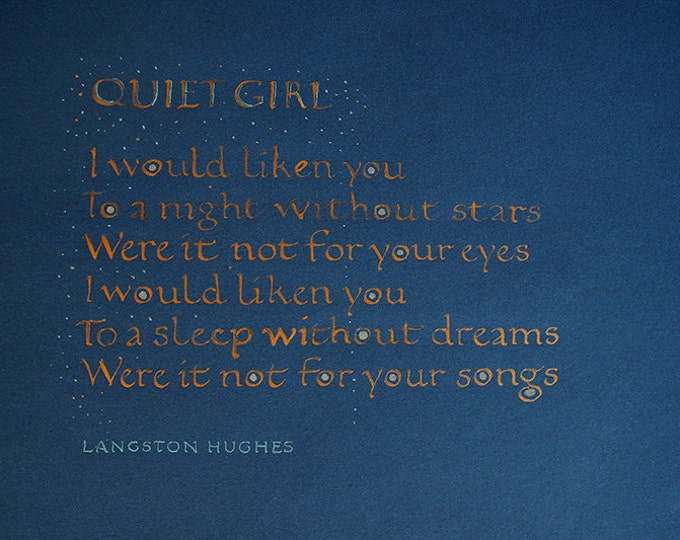 QUIET GIRL
I would liken you
To a night without stars
Were it not for your eyes
I would liken you
To a sleep without dreams
Were it not for your songs
LANGSTON HUGHES